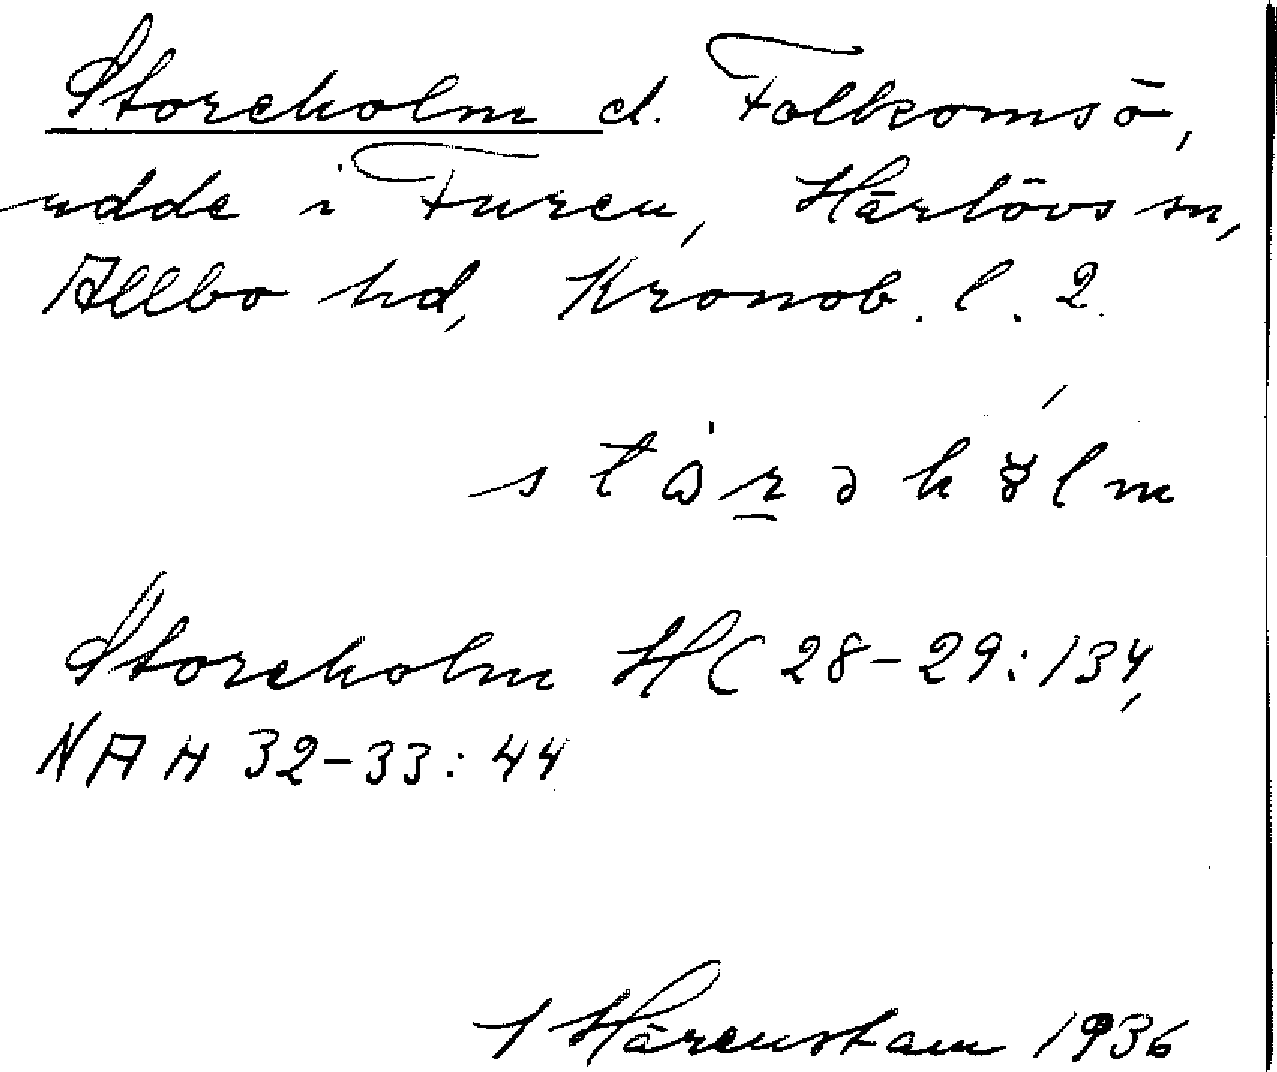 Storeholm d. Folkomsö,
udde i Furen, Härlövs sn,
Allbo hd, Kronob. l. 2.
Storeholm HC 28-29:134,
NAH 32-33:44
Härenstam 1936